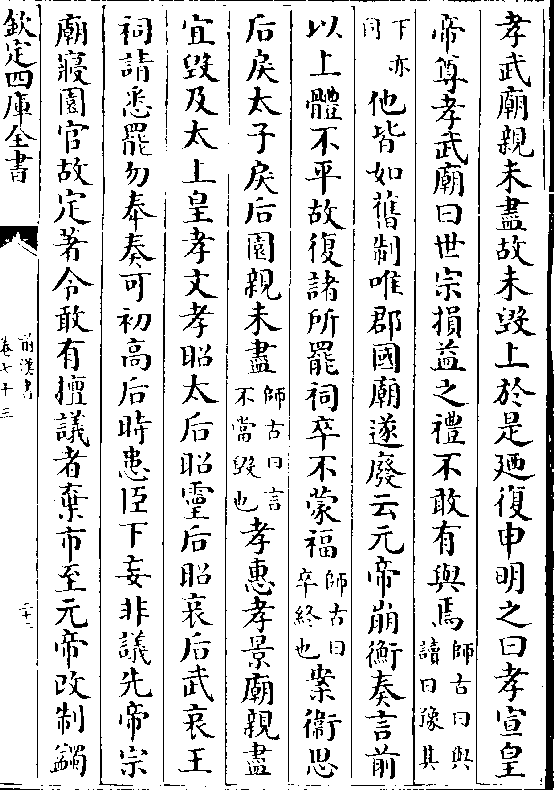 孝武廟親未盡故未毀上於是廼復申明之曰孝宣皇
帝尊孝武廟曰世宗損益之禮不敢有與焉師古曰與讀曰豫其
下亦同他皆如舊制唯郡國廟遂廢云元帝崩衡奏言前
以上體不平故復諸所罷祠卒不蒙福師古曰卒終也案衞思
后戾太子戾后園親未盡師古曰言不當毀也孝惠孝景廟親盡
宜毀及太上皇孝文孝昭太后昭靈后昭哀后武哀王
祠請悉罷勿奉奏可初高后時患臣下妄非議先帝宗
廟寢園官故定著令敢有擅議者棄市至元帝改制蠲
欽定四庫全書
前漢書
卷七十三
二十二